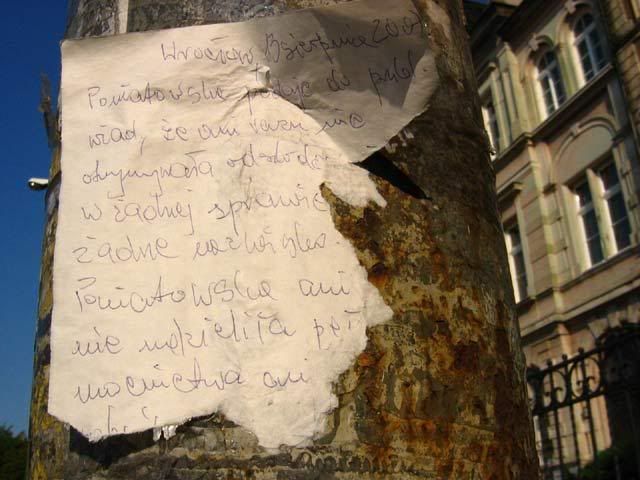 Wrocław Bsierpnia 200
Poniatowska podaje do publ.
wiad, że ani razu nie
otrzymała odszkod
w żadnej sprawie
żadne nazwisko
Poniatowska ani
nie udzieliła peł
mocnictwa ani